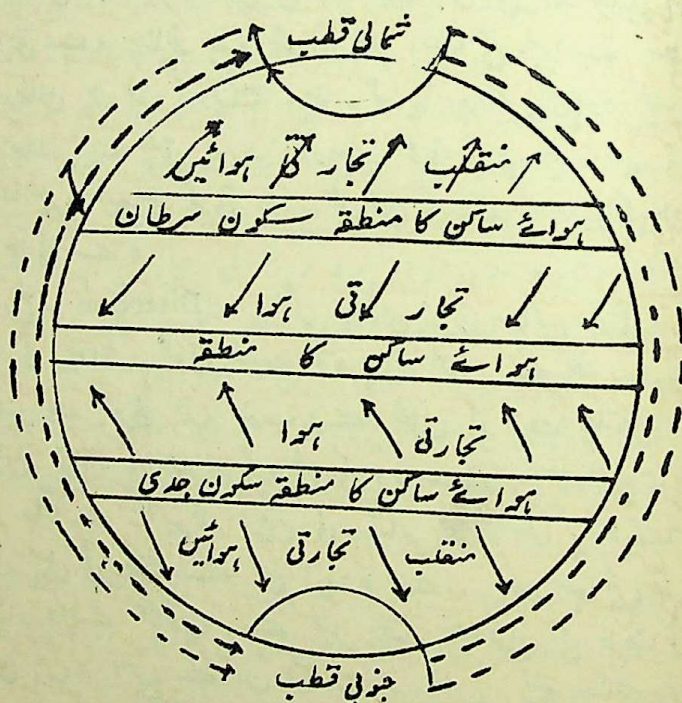 شمالی قطب
منقلب تجارتی ہوائیں
ہوائے ساکن کا منطقہ سکون سرطان
تجارتی ہوا
ہوائے ساکن کا منطقہ
تجارتی ہوا
ہوائے ساکن کا منطقہ سکون جدی
منقلب تجارتی ہوائیں
جنوبی قطب